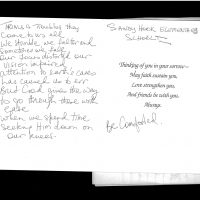 Troubles they
Come to us all
We stumble, we falter and
Sometimes we fall
Our
Vision impaired
Attention to Earth's cares
has caused us to err
But God gives the way
to go through these with
ease
when we spend time
Seeking Him down on
our knees.
SANDY HOOK ELEMENTARY
SCHOOL
Thinking of you in your sorrow—
May faith sustain you,
Love strengthen you,
And friends be with you.
Always.
Be Comforted.